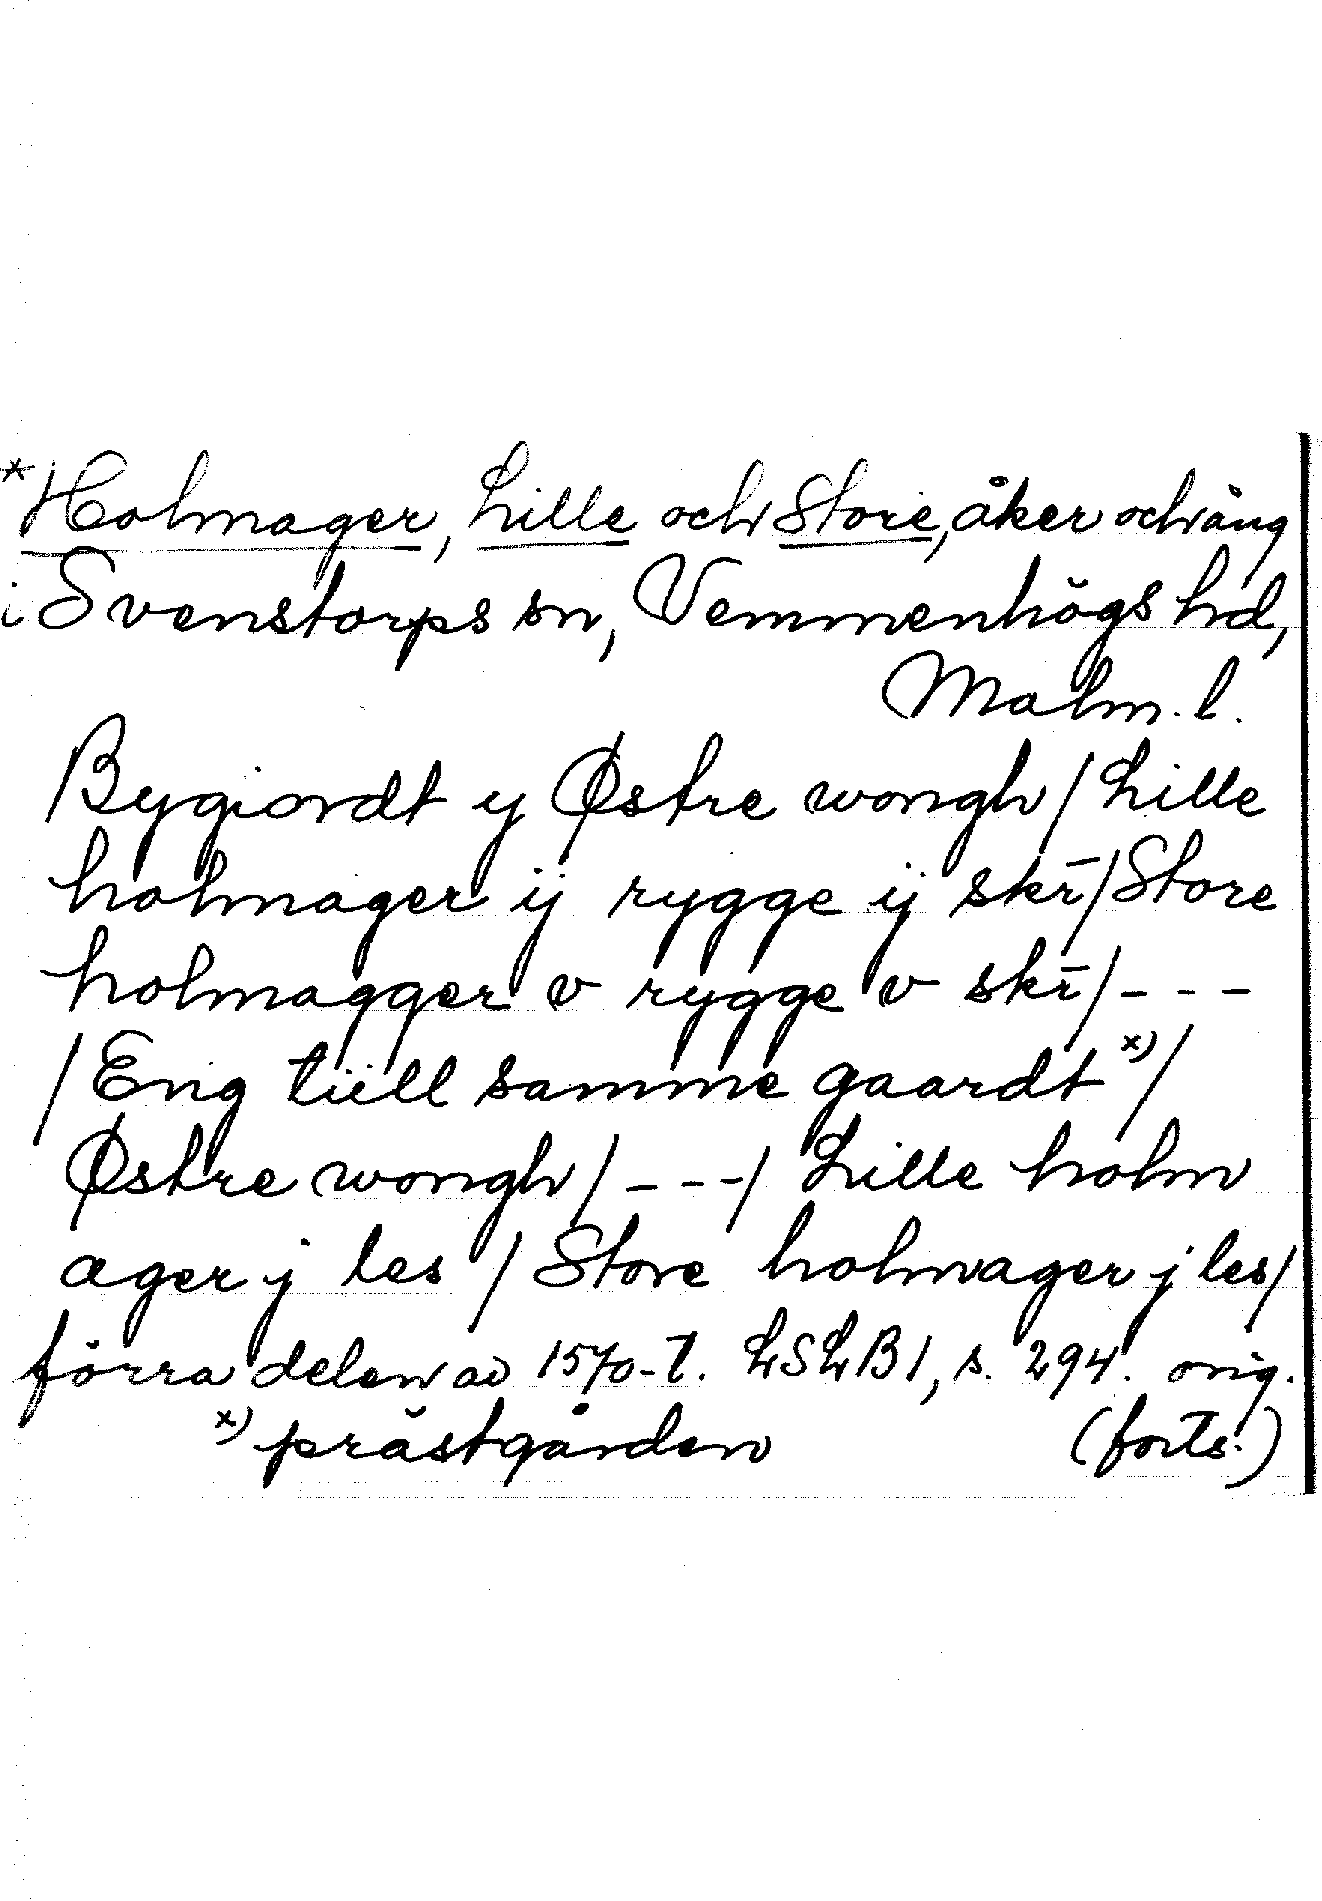 *Holmager, Lille och Store, åker och äng
i Svenstorps sn, Vemmenhögs hd,
Malm. l.
Bygiordt y Østre wongh / Lille
holmager ij rygge ij skr̄ / Store
holmagger v rygge v skr̄ / - - -
/ Eng tiill samme gaardt x) /
Østre wongh / - - - / Lille holm
ager j les / Store holmager j les /
förra delen av 1570-t. LSLB1, s. 294. orig.
x) prästgården (forts.)